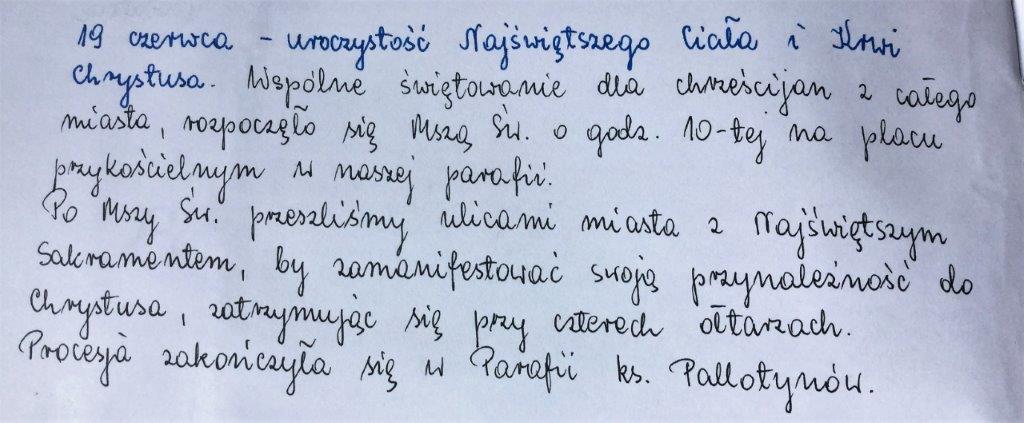 19 czerwca - uroczystość Najświętszego Ciała i Krwi
Chrystusa. Wspólne świętowanie dla chrześcijan z całego
miasta, rozpoczęło się Mszą Św. o godz. 10-tej na placu
przykościelnym w naszej parafii.
Po Mszy Św. przeszliśmy ulicami miasta z Najświętszym
Sakramentem, by zamanifestować swoją przynależność do
Chrystusa, zatrzymując się przy czterech ołtarzach.
Procesja zakończyła się w Parafii ks. Pallotynów.